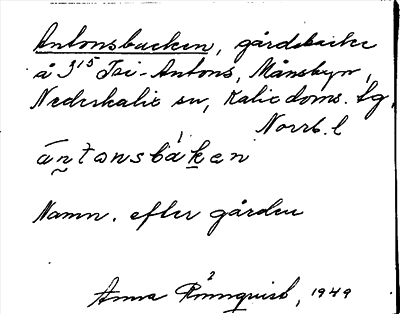 Antonsbacken, gårdsbacke
å 3¹⁵ Isi-Antons, Månsbyn,
Nederkalix sn, Kalix doms. tg,
Norrb. l
ántonsbàken
Namn. efter gården
Anna Rönnquist, 1949